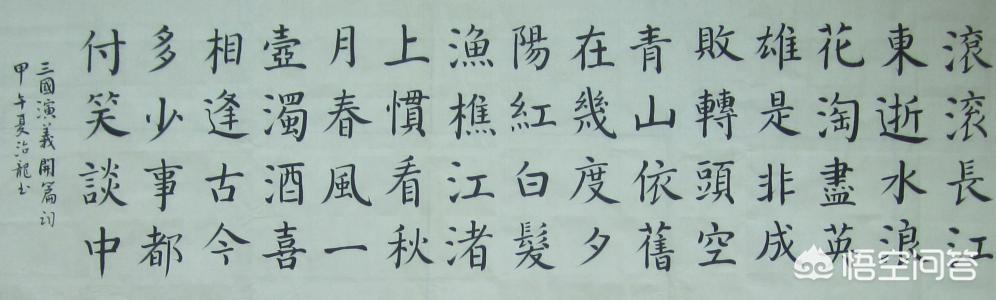 滾滾長江
東逝水浪
花淘盡英
雄是非成
敗轉頭空
青山依舊
在幾度夕
陽紅白髮
漁樵江渚
上慣看秋
月春風一
壺濁酒喜
相逢古今
多少事都
付笑談中
三國演義開篇詞
甲午夏治龍书
悟空问答